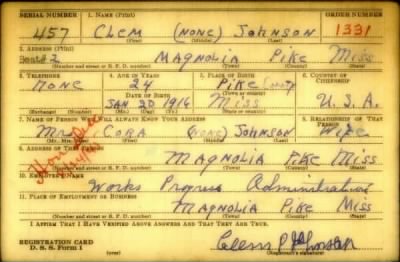 SERIAL NUMBER 1. NAME (Print) ORDER NUMBER
457 CLEM (NONE) JOHNSON 1331
(First) (Middle) (Last)
2. ADDRESS (Print)
2 MAGNOLIA PIKE MISS
(Number and street or R. F. D. number) (Town) (County) (State)
3. TELEPHONE 4. AGE IN YEARS 5. PLACE OF BIRTH 6. COUNTRY OF CITIZENSHIP
NONE 24 PIKE County
DATE OF BIRTH
JAN 20 1916 MISS U.S.A.
(Exchange) (Number) (Mo.) (Day) (Yr.) (State or country)
7. NAME OF PERSON WHO WILL ALWAYS KNOW YOUR ADDRESS 8. RELATIONSHIP OF THAT PERSON
MRS CORA (NONE) JOHNSON WIFE
(Mr., Mrs., Miss) (First) (Middle) (Last)
9. ADDRESS OF THAT PERSON
MAGNOLIA PIKE MISS
(Number and street or R. F. D. number) (Town) (County) (State)
10. EMPLOYER'S NAME
Works Progress Administration
11. PLACE OF EMPLOYMENT OR BUSINESS
MAGNOLIA PIKE MISS
(Number and street or R. F. D. number) (Town) (County) (State)
I AFFIRM THAT I HAVE VERIFIED ABOVE ANSWERS AND THAT THEY ARE TRUE.
REGISTRATION CARD
D. S. S. Form 1 (Registrant's signature)